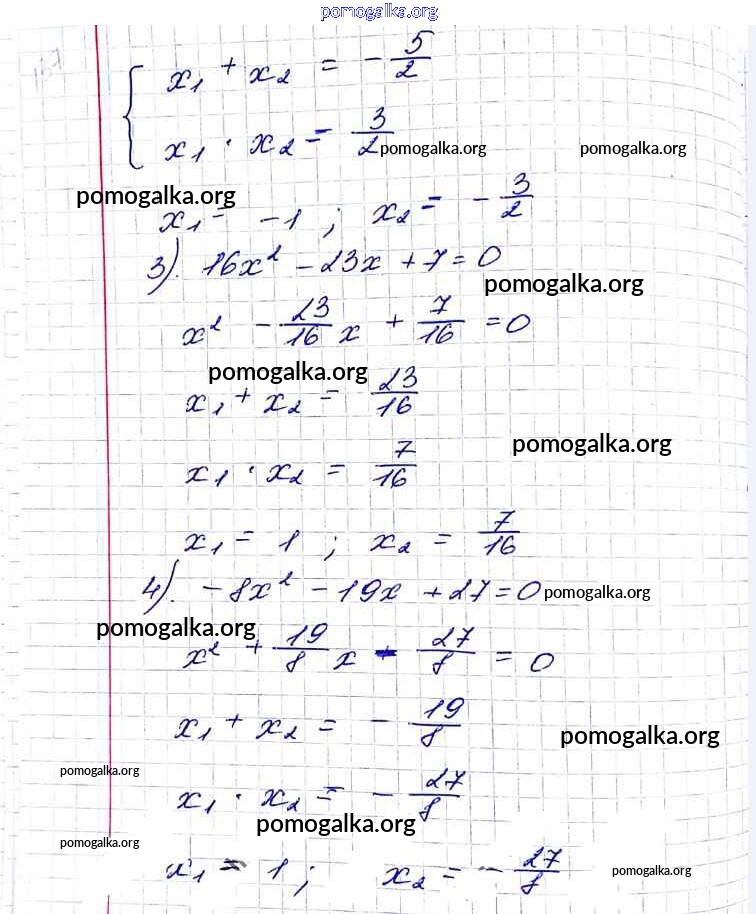 pomogalka.org
x₁ + x₂ = -5/2
x₁ · x₂ = 3/2 pomogalka.org pomogalka.org
pomogalka.org
x₁ = -1 ; x₂ = -3/2
3). 16x² - 23x + 7 = 0
pomogalka.org
x² - 23/16 x + 7/16 = 0
pomogalka.org
x₁ + x₂ = 23/16
pomogalka.org
x₁ · x₂ = 7/16
x₁ = 1 ; x₂ = 7/16
4). -8x² - 19x + 27 = 0 pomogalka.org
pomogalka.org
x² + 19/8 x - 27/8 = 0
x₁ + x₂ = -19/8
pomogalka.org
pomogalka.org
x₁ · x₂ = -27/8
pomogalka.org
pomogalka.org
x₁ = 1 ; x₂ = -27/8
pomogalka.org